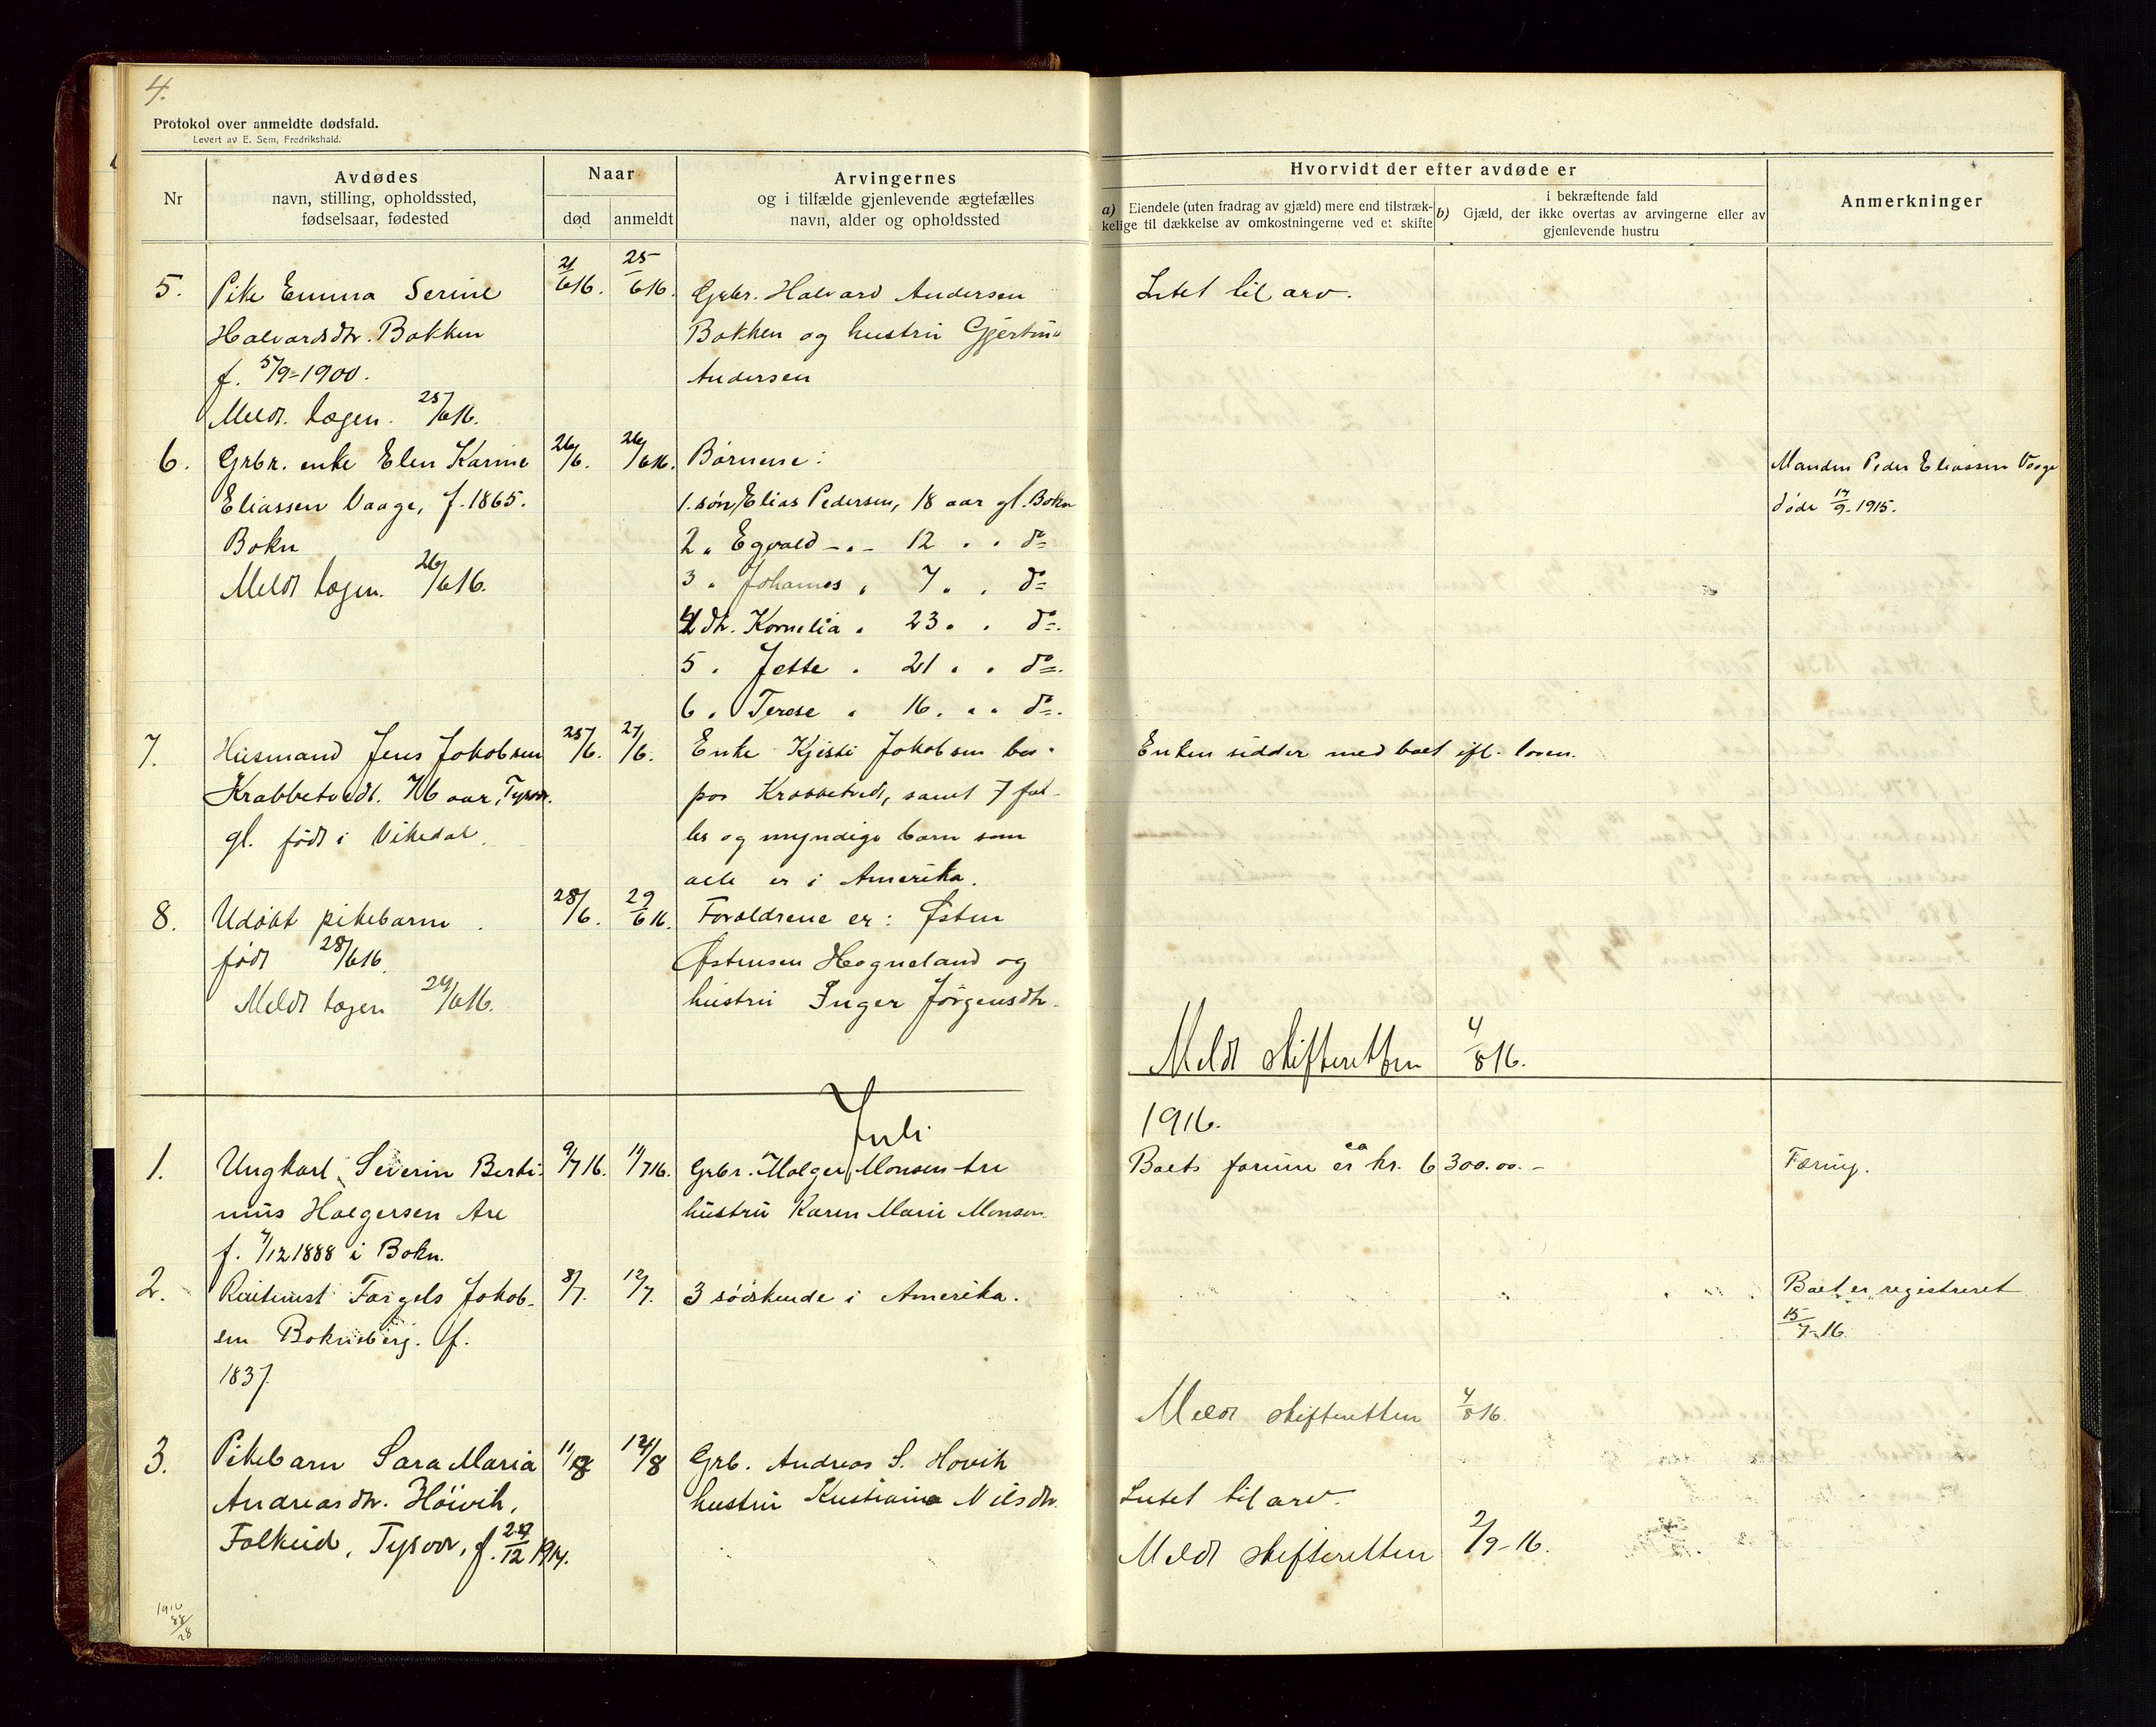 4.
Protokol over anmeldte dødsfald.
Levert av E. Sem, Fredrikshald.
Nr
Avdødes
navn, stilling, opholdssted,
fødselsaar, fødested
Naar
død
anmeldt
Arvingernes
og i tilfælde gjenlevende ægtefælles
navn, alder og opholdssted
Hvorvidt der efter avdøde er
a) Eiendele (uten fradrag av gjæld) mere end tilstræk-
kelige til dækkelse av omkostningerne ved et skifte
i bekræftende fald
b) Gjæld, der ikke overtas av arvingerne eller av
gjenlevende hustru
Anmerkninger
5. Pike Emma Serine 21/6 16. 25/6 16. Grbr. Halvard Andersen Intet til arv.
Halvardsdtr. Bokken Bokken og hustru Gjertine
f. 5/9-1900. Andersen
Meldt lægen. 25/6 16.
6. Grbr. enke Elen Karine 26/6. 26/6 16. Børnene: Manden Peder Eliassen Vaage
Eliassen Vaage, f. 1865. 1. søn Elias Pedersen, 18 aar gl. Bokn døde 17/9-1915.
Bokn 2 „ Egvald -„- 12 „ „ do
Meldt lægen. 26/6 16. 3 „ Johannes „ 7 „ „ do
4 dtr. Kornelia „ 23 „ „ do.
5 „ Jette „ 21 „ „ do.
6 „ Terese „ 16 „ „ do.
7. Husmand Jens Jokobsen 25/6. 27/6. Enke Kjisti Jokobsen bo- Enken sidder med boet ifl. loven.
Krabbetvedt. 76 aar, Tysvær. paa Krabbetvedt, samt 7 ful-
gl. født i Vikedal. le og myndige barn som
alle er i Amerika.
8. Udøbt pikebarn 28/6. 29/6 16. Foraldrene er: Østen
født 28/6 16. Østensen Hegneland og
Meldt lægen 29/6 16. hustru Inger Jørgensdtr.
Meldt skifteretten 4/8 16.
Juli 1916.
1. Ungkarl Severin Berti- 9/7 16. 11/7 16. Grbr. Holger Monsen Are Boets formue er ca kr. 6300.00.-
nius Holgersen Are hustru Karen Marie Monsen
f. 7/12 1888 i Bokn.
2. Torgels Jokob- 8/7. 12/7. 3 søskende i Amerika. Boet er registreret
sen Bokneberg. f. 15/7-16.
1837
Meldt skifteretten 4/8 16.
3. Pikebarn Sara Maria 11/8 14/8 Grb. Andreas S. Hovik
Andreasdtr. Höivik, hustru Kristiane Nilsdtr. Intet til arv.
Falkeid, Tysvær, f. 27/12 1914. Meldt skifteretten 2/9-16.